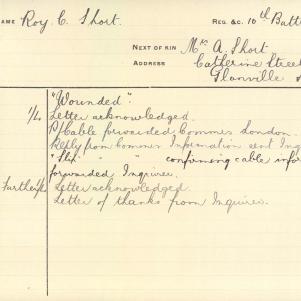 NAME Roy. C. Short. REG. &C. 10th Batt
NEXT OF KIN Mrs A. Short
ADDRESS Catherine Street
Glanville
"Wounded".
Letter acknowledged.
P/Cable forwarded Commrs London.
Reply from Commrs Information sent Inq
" " confirming cable infor
forwarded Inquirer.
Letter acknowledged.
Letter of thanks from Inquirer.